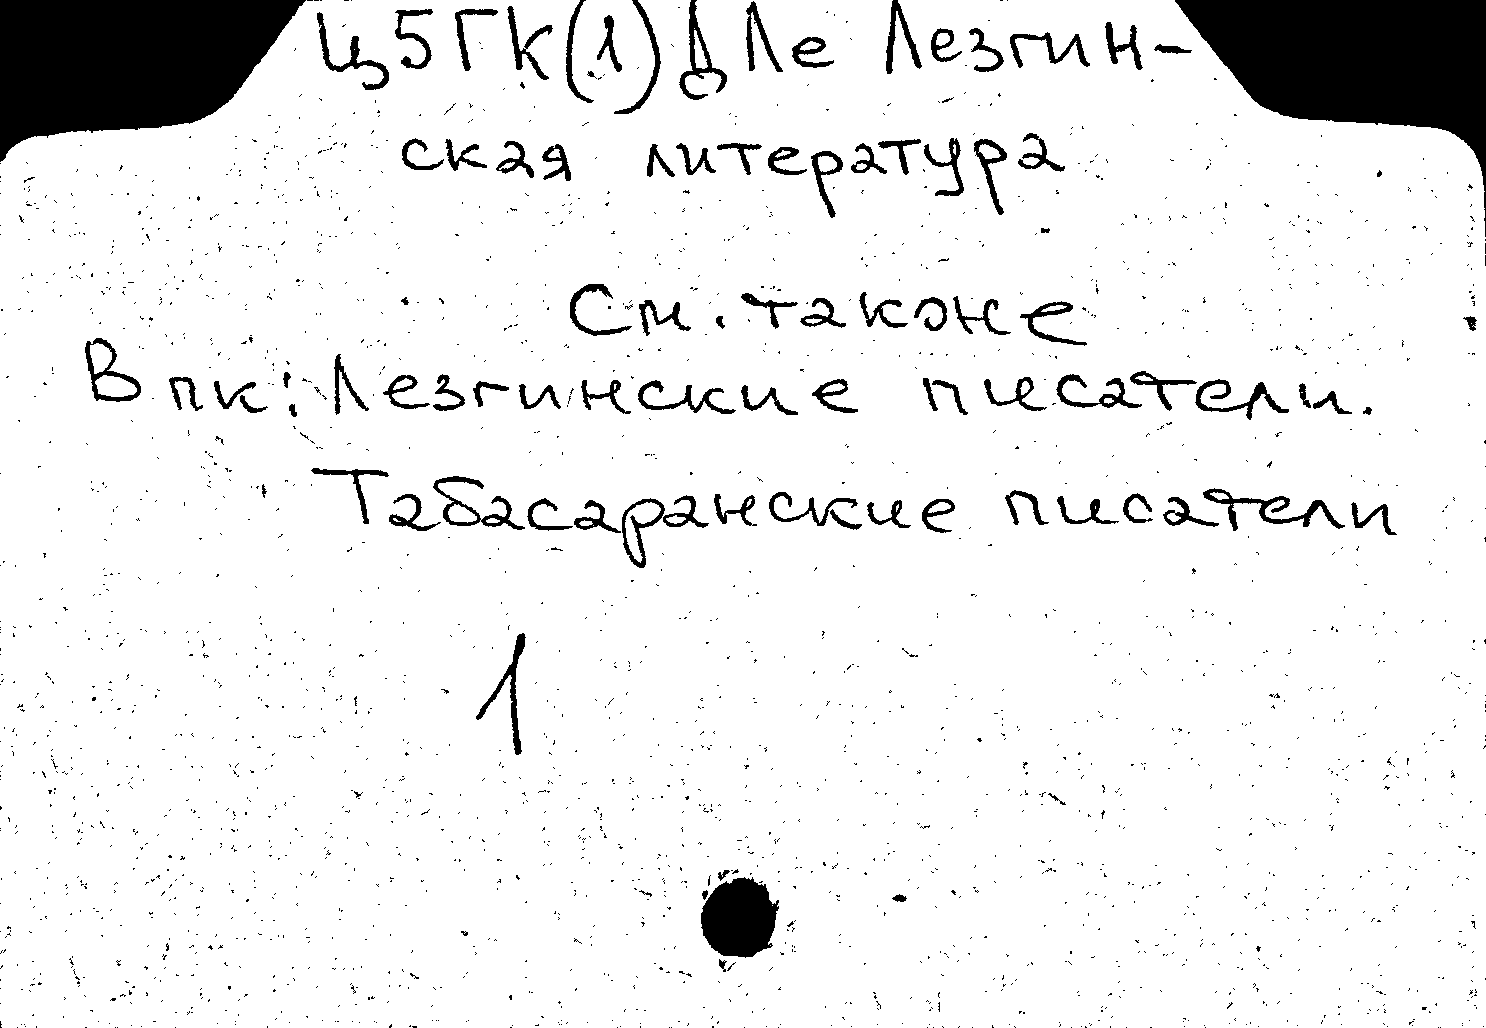 Ц5ГК(1)Д Ле Лезгин-
ская литература
См. также
В пк: Лезгинские писатели.
Табасаранские писатели
1